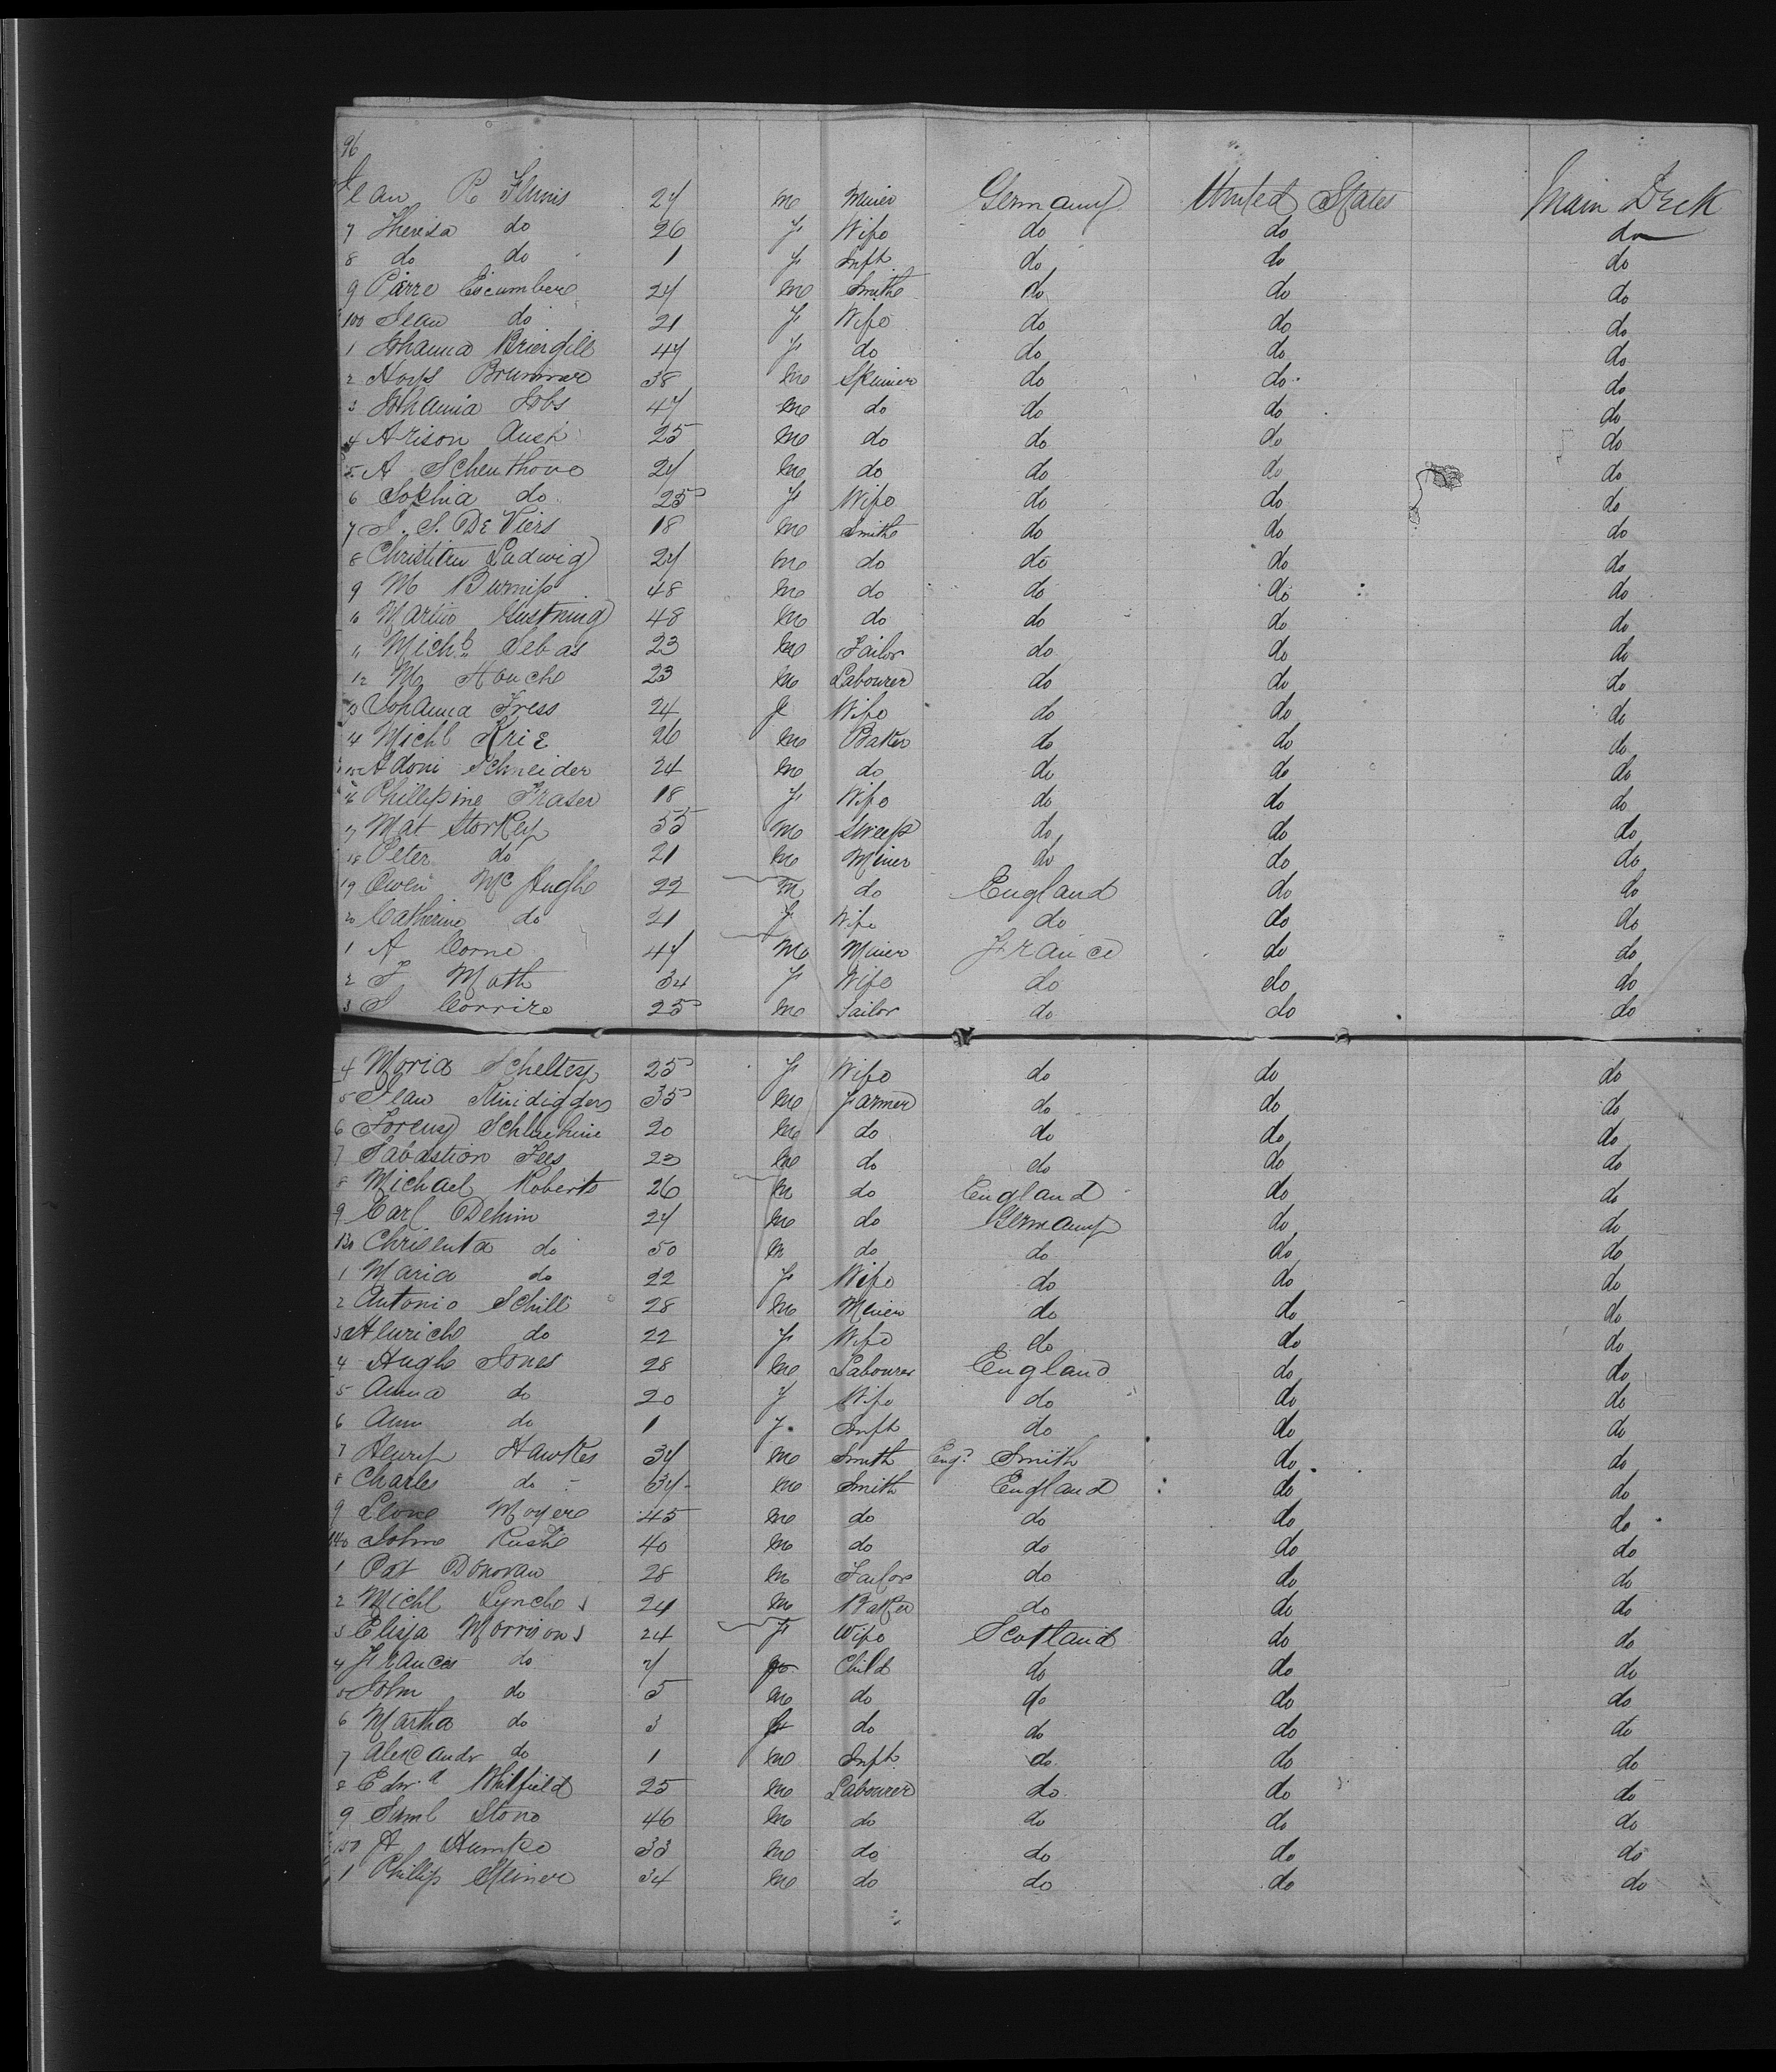 96
Jean P. Flinis 27 m Miner Germany United States Main Deck
7 Theresa do 26 f Wife do do do
8 do do 1 f Inft do do do
9 Pierre Escumbere 27 m Smith do do do
100 Jean do 21 f Wife do do do
1 Johanna Briengill 47 f do do do do
2 Hoys Brunner 38 m Skinner do do do
3 Johania Jobs 47 m do do do do
4 Arison Auch 25 m do do do do
5 A Scheuthove 27 m do do do do
6 Sophia do 25 f Wife do do do
7 J. S. DeViers 18 m Smith do do do
8 Christian Ludwig 27 m do do do do
9 M 48 m do do do do
10 Martin Gustning 48 m do do do do
11 Michl Sebas 23 m Tailor do do do
12 M Houche 23 m Labourer do do do
13 Johanna Fress 24 f Wife do do do
4 Michl Krie 26 m Baker do do do
15 Adoni Schneider 24 m do do do do
16 Phillipine Fraser 18 f Wife do do do
17 Mat Storkey 55 m Sweep do do do
18 Peter do 21 m Miner do do do
19 Owen McHugh 22 m do England do do
20 Catherine do 21 f Wife do do do
1 A Corne 47 m Miner France do do
2 F Math 34 f Wife do do do
3 J Corrire 25 m Sailor do do do
4 Moria Scheltey 25 f Wife do do do
5 Jean 35 m Farmer do do do
6 Lorenz 20 m do do do do
7 Sabastion Fees 23 m do do do do
8 Michael Roberts 26 m do England do do
9 Carl Dehim 27 m do Germany do do
130 Chrisenta do 50 m do do do do
1 Maria do 22 f Wife do do do
2 Antonio Schill 28 m Miner do do do
3 do 22 f Wife do do do
4 Hugh Jones 28 m Labourer England do do
5 Anna do 20 f Wife do do do
6 Ann do 1 f Inft do do do
7 Henry Hawkes 37 m Smith Engd Smith do do
8 Charles do 37 m Smith England do do
9 Leone Moyere 45 m do do do do
140 John Rushe 40 m do do do do
1 Pat Donovan 28 m Tailor do do do
2 Michl Lynch 24 m Baker do do do
3 Elisja Morrison 24 f Wife Scotland do do
4 Frances do 7 f Child do do do
5 John do 5 m do do do do
6 Martha do 3 f do do do do
7 Alexandr do 1 m Inft do do do
8 Edwd Whitfield 25 m Labourer do do do
9 Saml Stone 46 m do do do do
150 A Humpe 33 m do do do do
1 Phillip Kleiner 34 m do do do do